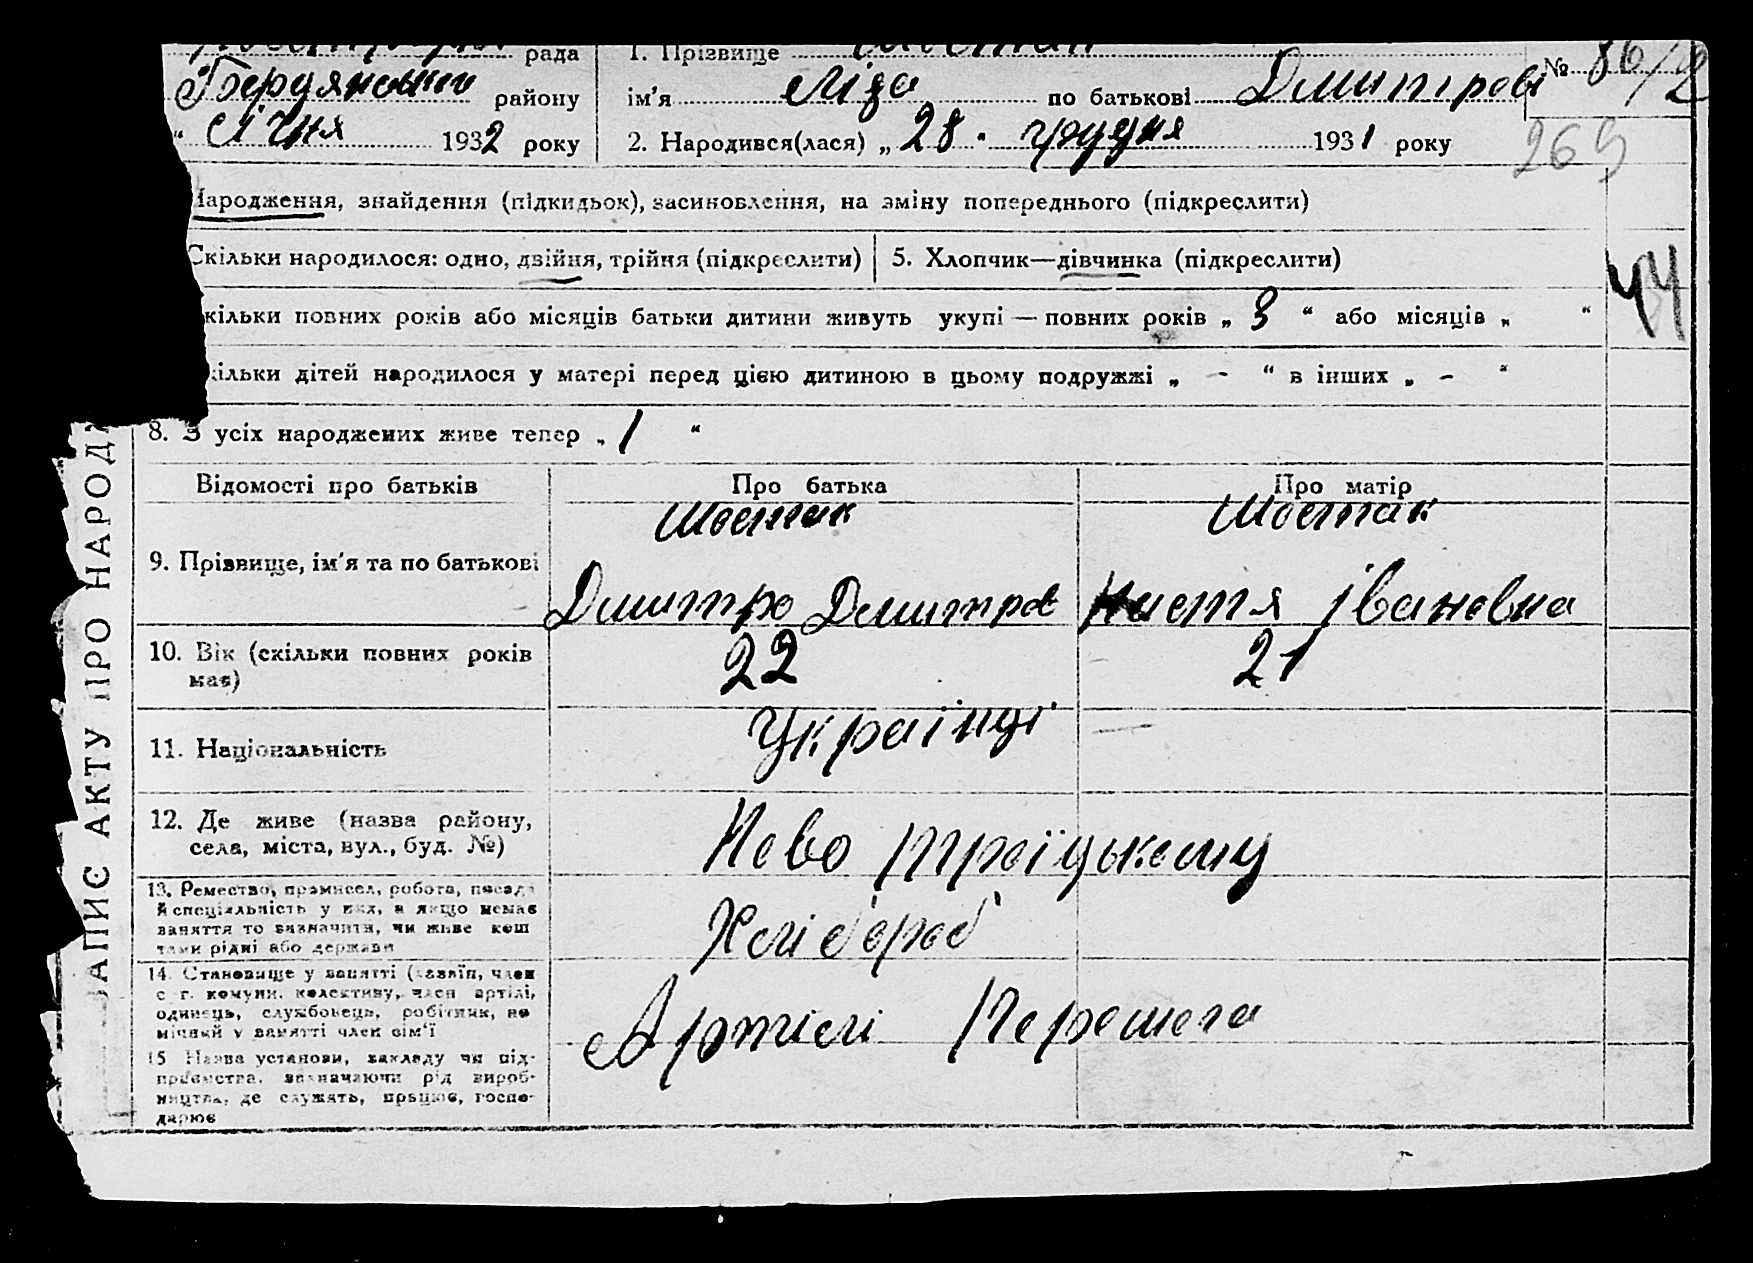 рада
1. Прізвище
Бердянського району
ім'я Ліза по батькові Дмитрові
№ 86/
„ січня 1932 року
2. Народився(лася) „ 28 " грудня 1931 року
269
Народження, знайдення (підкидьок), засиновлення, на зміну попереднього (підкреслити)
Скільки народилося: одно, двійня, трійня (підкреслити)
5. Хлопчик—дівчинка (підкреслити)
44
кільки повних років або місяців батьки дитини живуть укупі — повних років „ 3 “ або місяців „ “
кільки дітей народилося у матері перед цією дитиною в цьому подружжі „ - “ в інших „ - “
8. З усіх народжених живе тепер „ 1 “
ЗАПИС АКТУ ПРО НАРОД
Відомості про батьків
Про батька
Про матір
9. Прізвище, ім'я та по батькові
Шостак
Дмитро Дмитров
Шостак
Настя Івановна
10. Вік (скільки повних років
має)
22
21
11. Національність
Українці
12. Де живе (назва району,
села, міста, вул., буд. №)
Ново троїцькому
13. Ремество, промисел, робота, посада
й спеціяльність у них, а якщо немає
заняття то зазначити, чи живе кош
тами рідні або держави
Хлібороб
14. Становище у занятті (хазяїн, член
с.-г. комуни, колективу, член артілі,
одинець, службовець, робітник, по
мічний у занятті член сім'ї
Артілі
15 Назва установи, закладу чи під-
приємства, зазначаючи рід вироб-
ництва, де служать, працює, госпо-
дарює